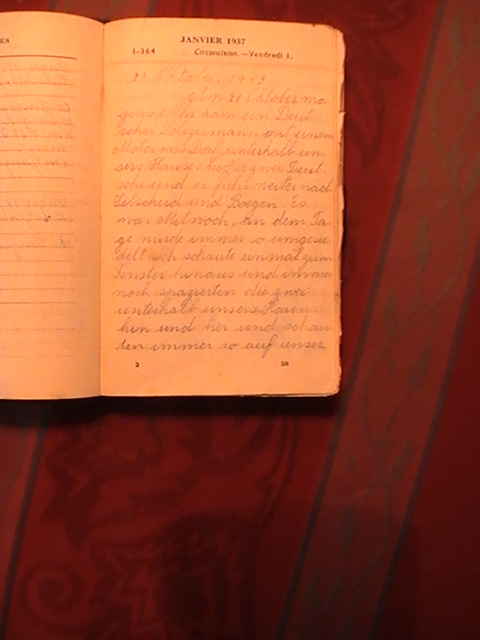 ES
JANVIER 1937
1-364 Circoncision.—Vendredi 1.
27. Oktober. 1943
Am 27. Oktober mor
gens Uhr kam ein Deut
scher mit einem
Motor ins Dorf, unterhalb un
sers Hauses zwei Deut
sche und er fuhr weiter nach
und Boegen. Es
war Mitwoch, An dem Ta
ge wurde immer so umgesie
delt ich schaute einmal zum
Fenster hinaus und immer
noch spazierten die zwei
unterhalb unsers Hauses
hin und her und schau
ten immer so auf unser
2 28